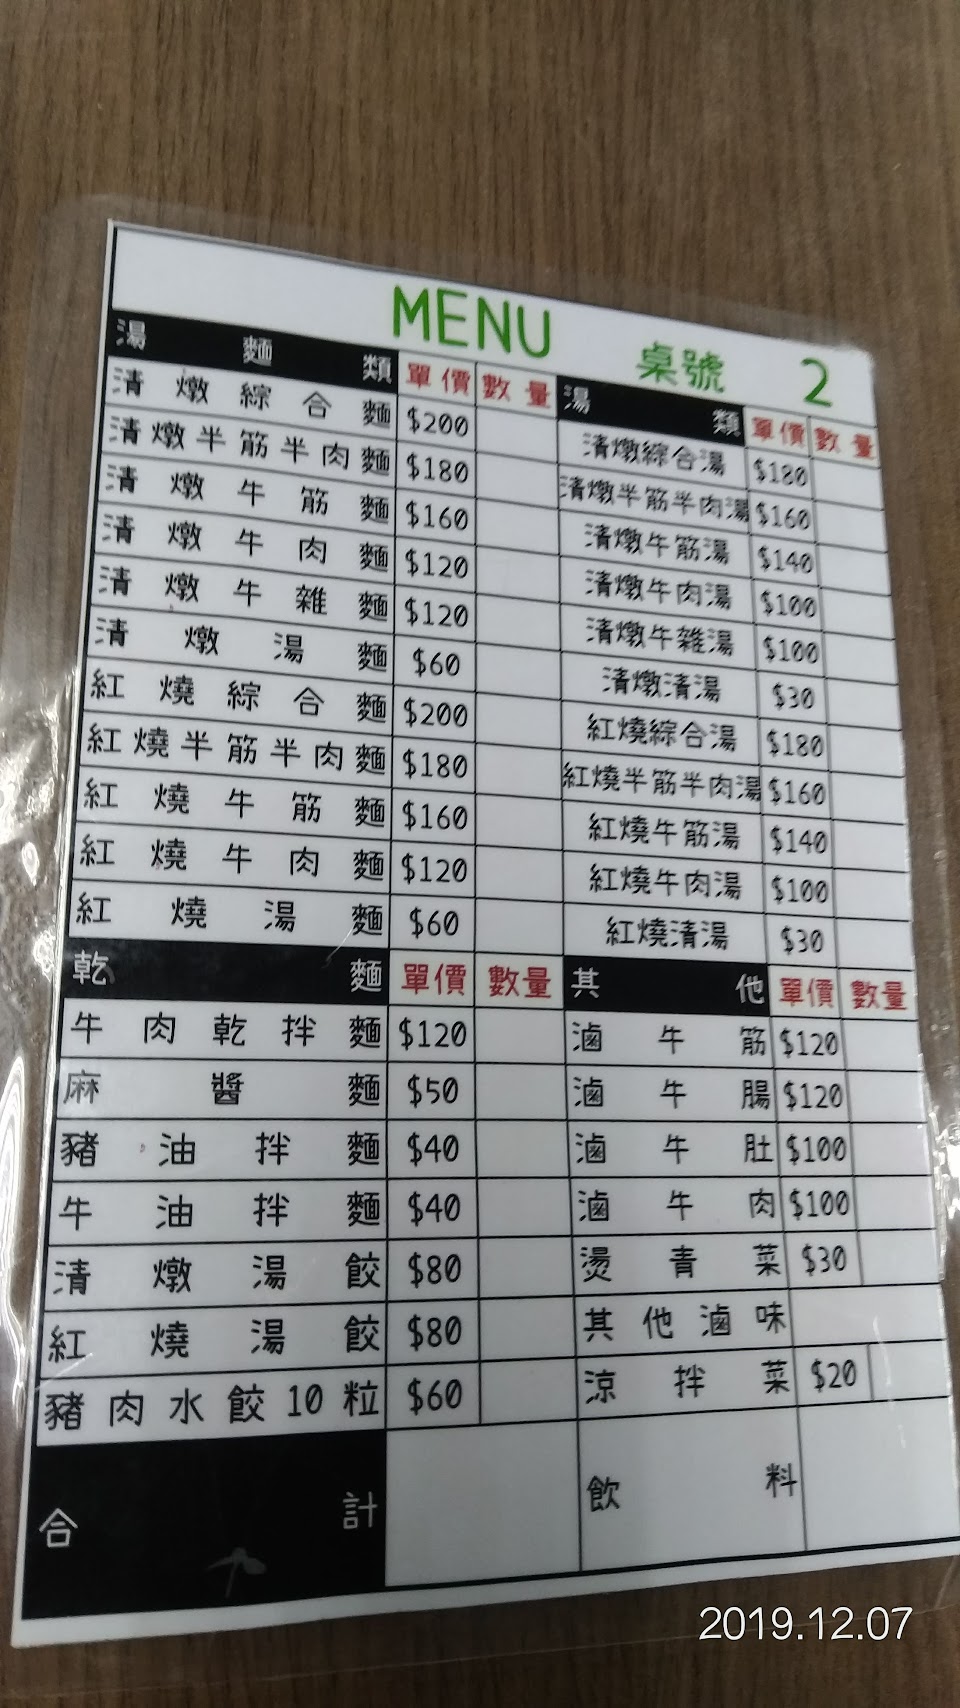 MENU 桌號 2
湯麵類 單價 數量
清燉綜合麵 $200
清燉半筋半肉麵 $180
清燉牛筋麵 $160
清燉牛肉麵 $120
清燉牛雜麵 $120
清燉湯麵 $60
紅燒綜合麵 $200
紅燒半筋半肉麵 $180
紅燒牛筋麵 $160
紅燒牛肉麵 $120
紅燒湯麵 $60
乾麵 單價 數量
牛肉乾拌麵 $120
麻醬麵 $50
豬油拌麵 $40
牛油拌麵 $40
清燉湯餃 $80
紅燒湯餃 $80
豬肉水餃10粒 $60
合計
湯類 單價 數量
清燉綜合湯 $180
清燉半筋半肉湯 $160
清燉牛筋湯 $140
清燉牛肉湯 $100
清燉牛雜湯 $100
清燉清湯 $30
紅燒綜合湯 $180
紅燒半筋半肉湯 $160
紅燒牛筋湯 $140
紅燒牛肉湯 $100
紅燒清湯 $30
其他 單價 數量
滷牛筋 $120
滷牛腸 $120
滷牛肚 $100
滷牛肉 $100
燙青菜 $30
其他滷味
涼拌菜 $20
飲料
2019.12.07